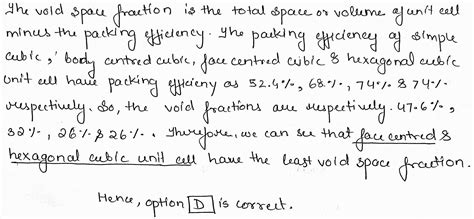 The void space fraction is the total space or volume of unit cell
minus the packing efficiency. The packing efficiency of simple
cubic, body centred cubic, face centred cubic & hexagonal cubic
unit cell have packing efficieny as 52.4%, 68%, 74% & 74%
respectively. So, the void fractions are respectively. 47.6%,
32%, 26% & 26%. Therefore, we can see that face centred &
hexagonal cubic unit cell have the least void space fraction.
Hence, option D is correct.